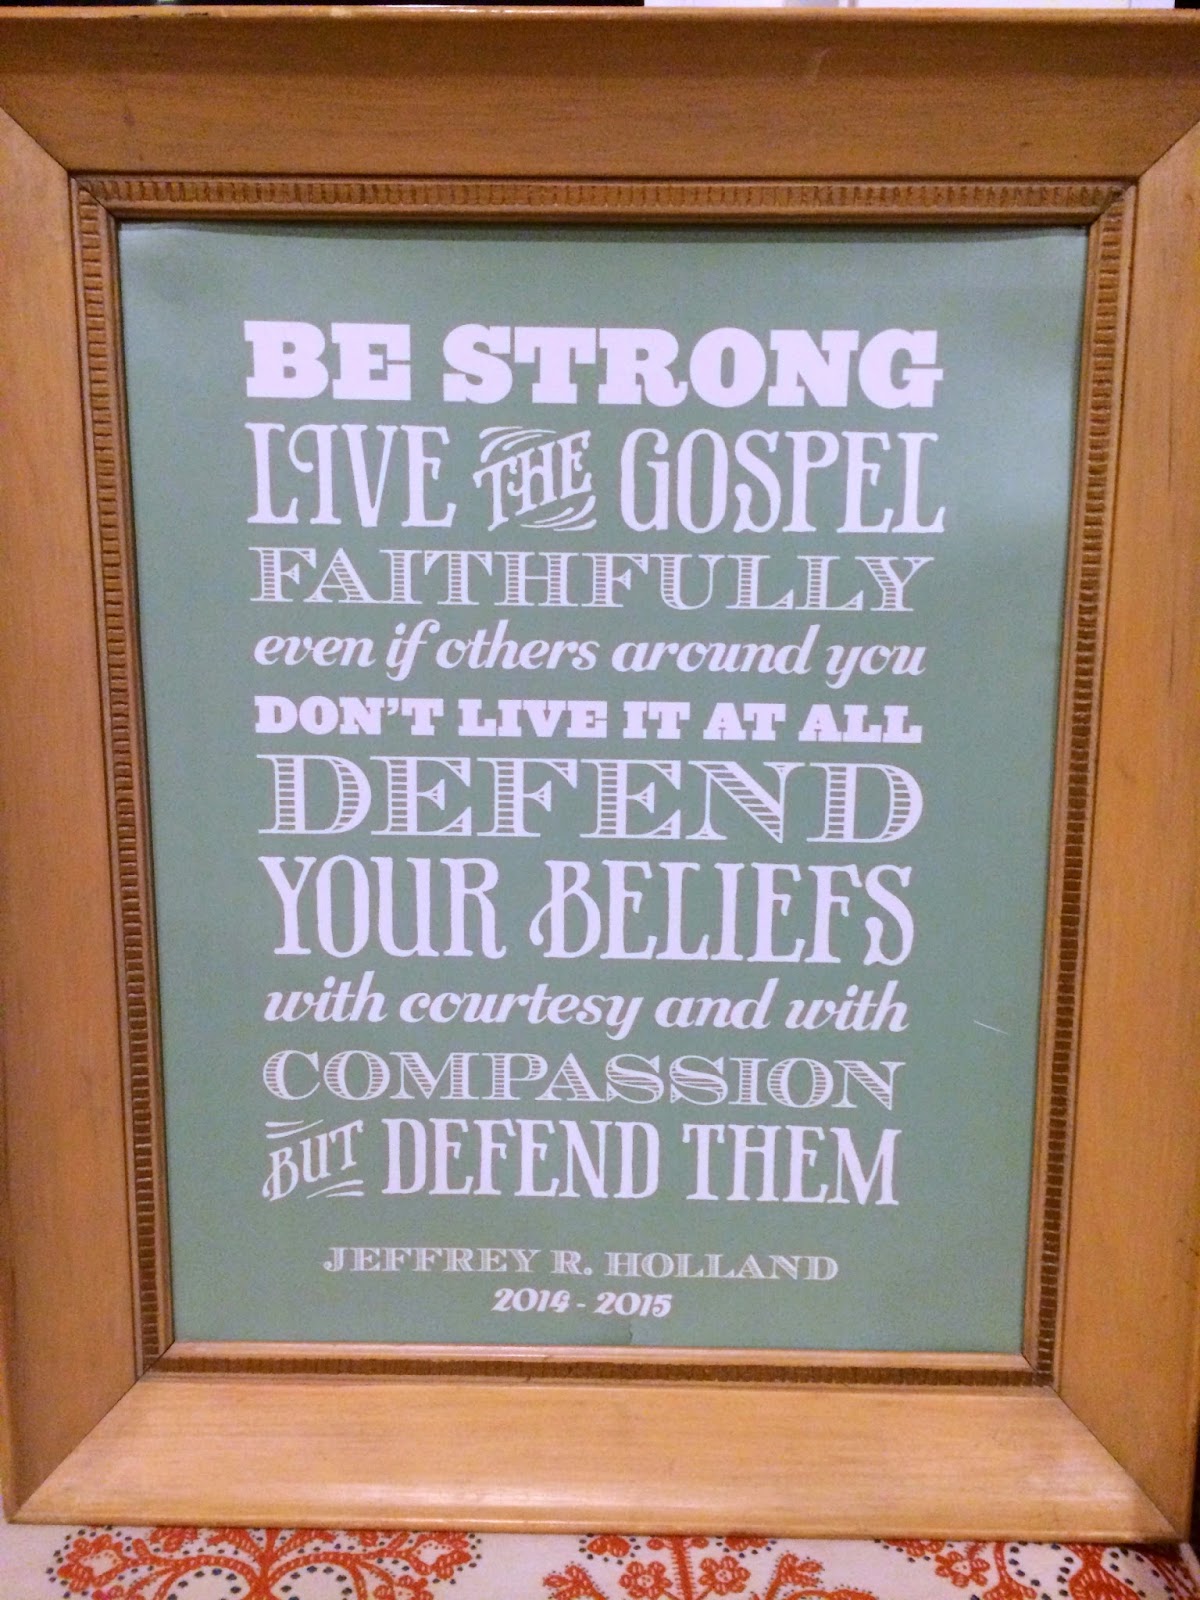 BE STRONG
LIVE THE GOSPEL
FAITHFULLY
even if others around you
DON'T LIVE IT AT ALL
DEFEND
YOUR BELIEFS
with courtesy and with
COMPASSION
BUT DEFEND THEM
JEFFREY R. HOLLAND
2014 - 2015